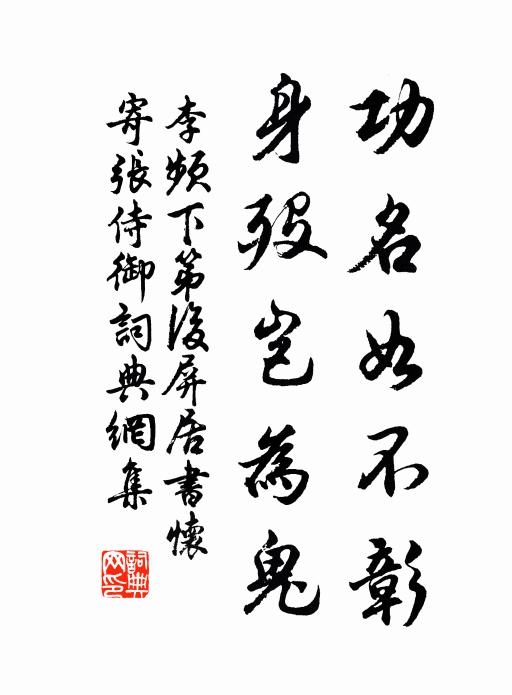 功名如不彰
身歿豈為鬼
李頻下第後屏居書懷
寄張侍御詞典網集
詞典網印